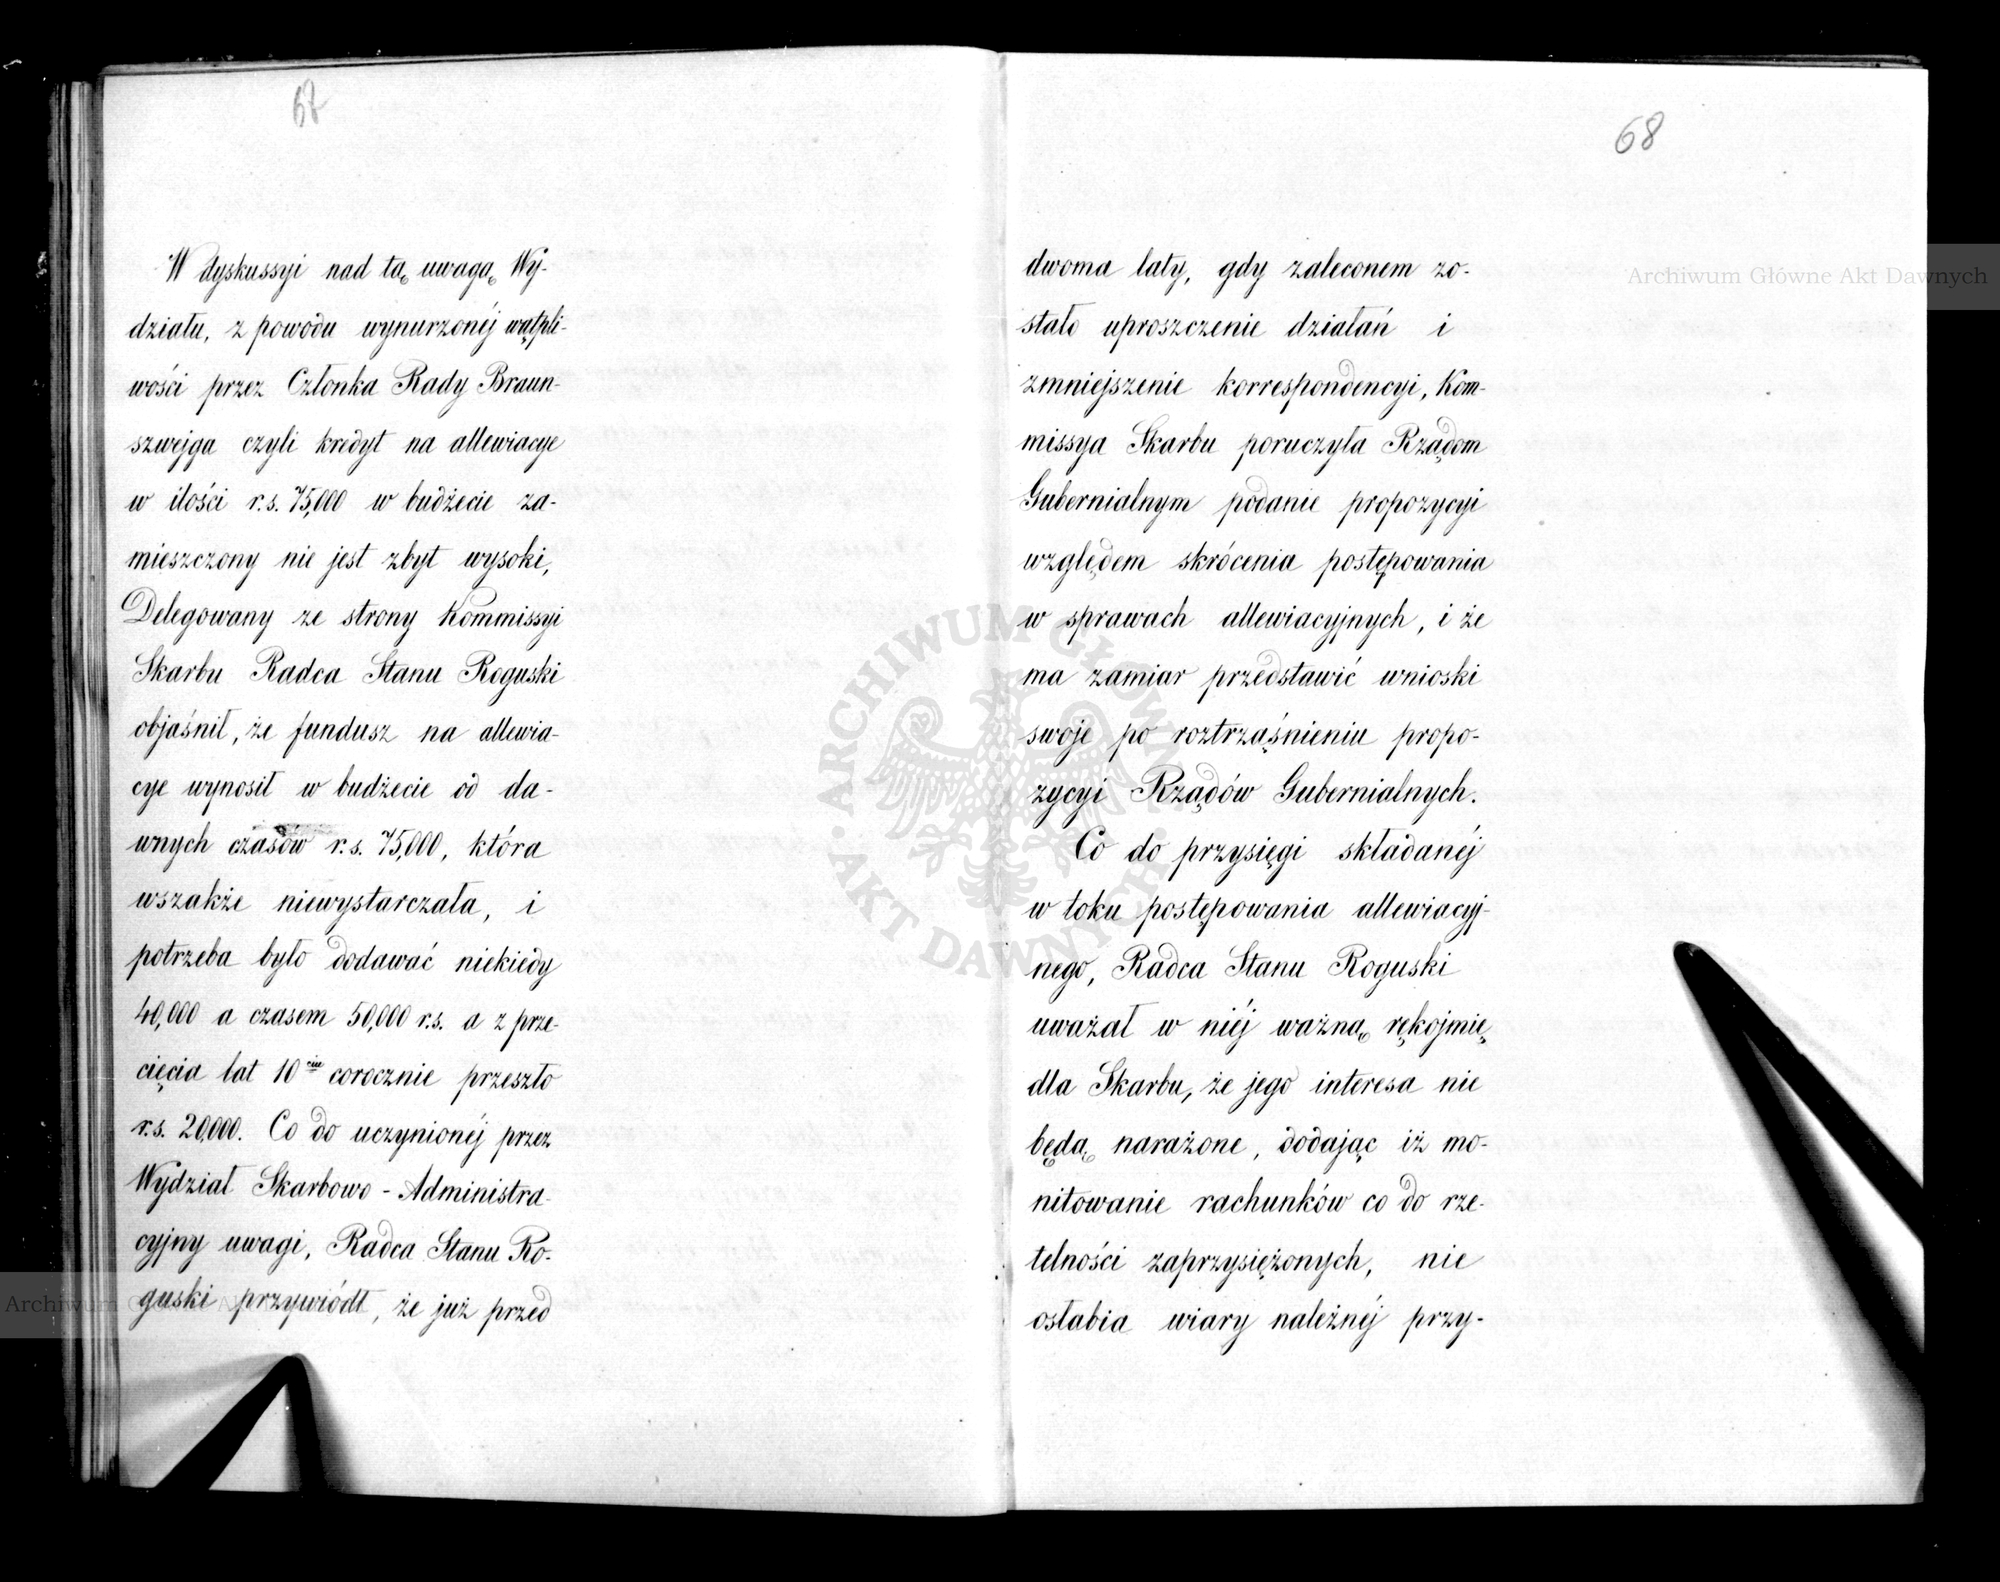 67
W dyskussyi nad tą uwagą Wy-
działu, z powodu wynurzonéj wątpli-
wości przez Członka Rady Braun-
szwejga czyli kredyt na allewiacye
w ilości r.s. 75,000 w budżecie za-
mieszczony nie jest zbyt wysoki,
Delegowany ze strony Kommissyi
Skarbu Radca Stanu Roguski
objaśnił, że fundusz na allewia-
cye wynosił w budżecie od da-
wnych czasów r.s. 75,000, która
wszakże niewystarczała, i
potrzeba było dodawać niekiedy
40,000 a czasem 50,000 r.s. a z prze-
cięcia lat 10ciu corocznie przeszło
r.s. 20,000. Co do uczynionéj przez
Wydział Skarbowo-Administra-
cyjny uwagi, Radca Stanu Ro-
guski przywiódł, że już przed
68
dwoma laty, gdy zaleconem zo-
stało uproszczenie działań i
zmniejszenie korrespondencyi, Kom-
missya Skarbu poruczyła Rządom
Gubernialnym podanie propozycyi
względem skrócenia postępowania
w sprawach allewiacyjnych, i że
ma zamiar przedstawić wnioski
swoje po roztrząśnieniu propo-
zycyi Rządów Gubernialnych.
Co do przysięgi składanéj
w toku postępowania allewiacyj-
nego, Radca Stanu Roguski
uważał w niéj ważną rękojmię
dla Skarbu, że jego interesa nie
będą narażone, dodając iż mo-
nitowanie rachunków co do rze-
telności zaprzysiężonych, nie
osłabia wiary należnéj przy-
Archiwum Główne Akt Dawnych
ARCHIWUM GŁÓWNE AKT DAWNYCH